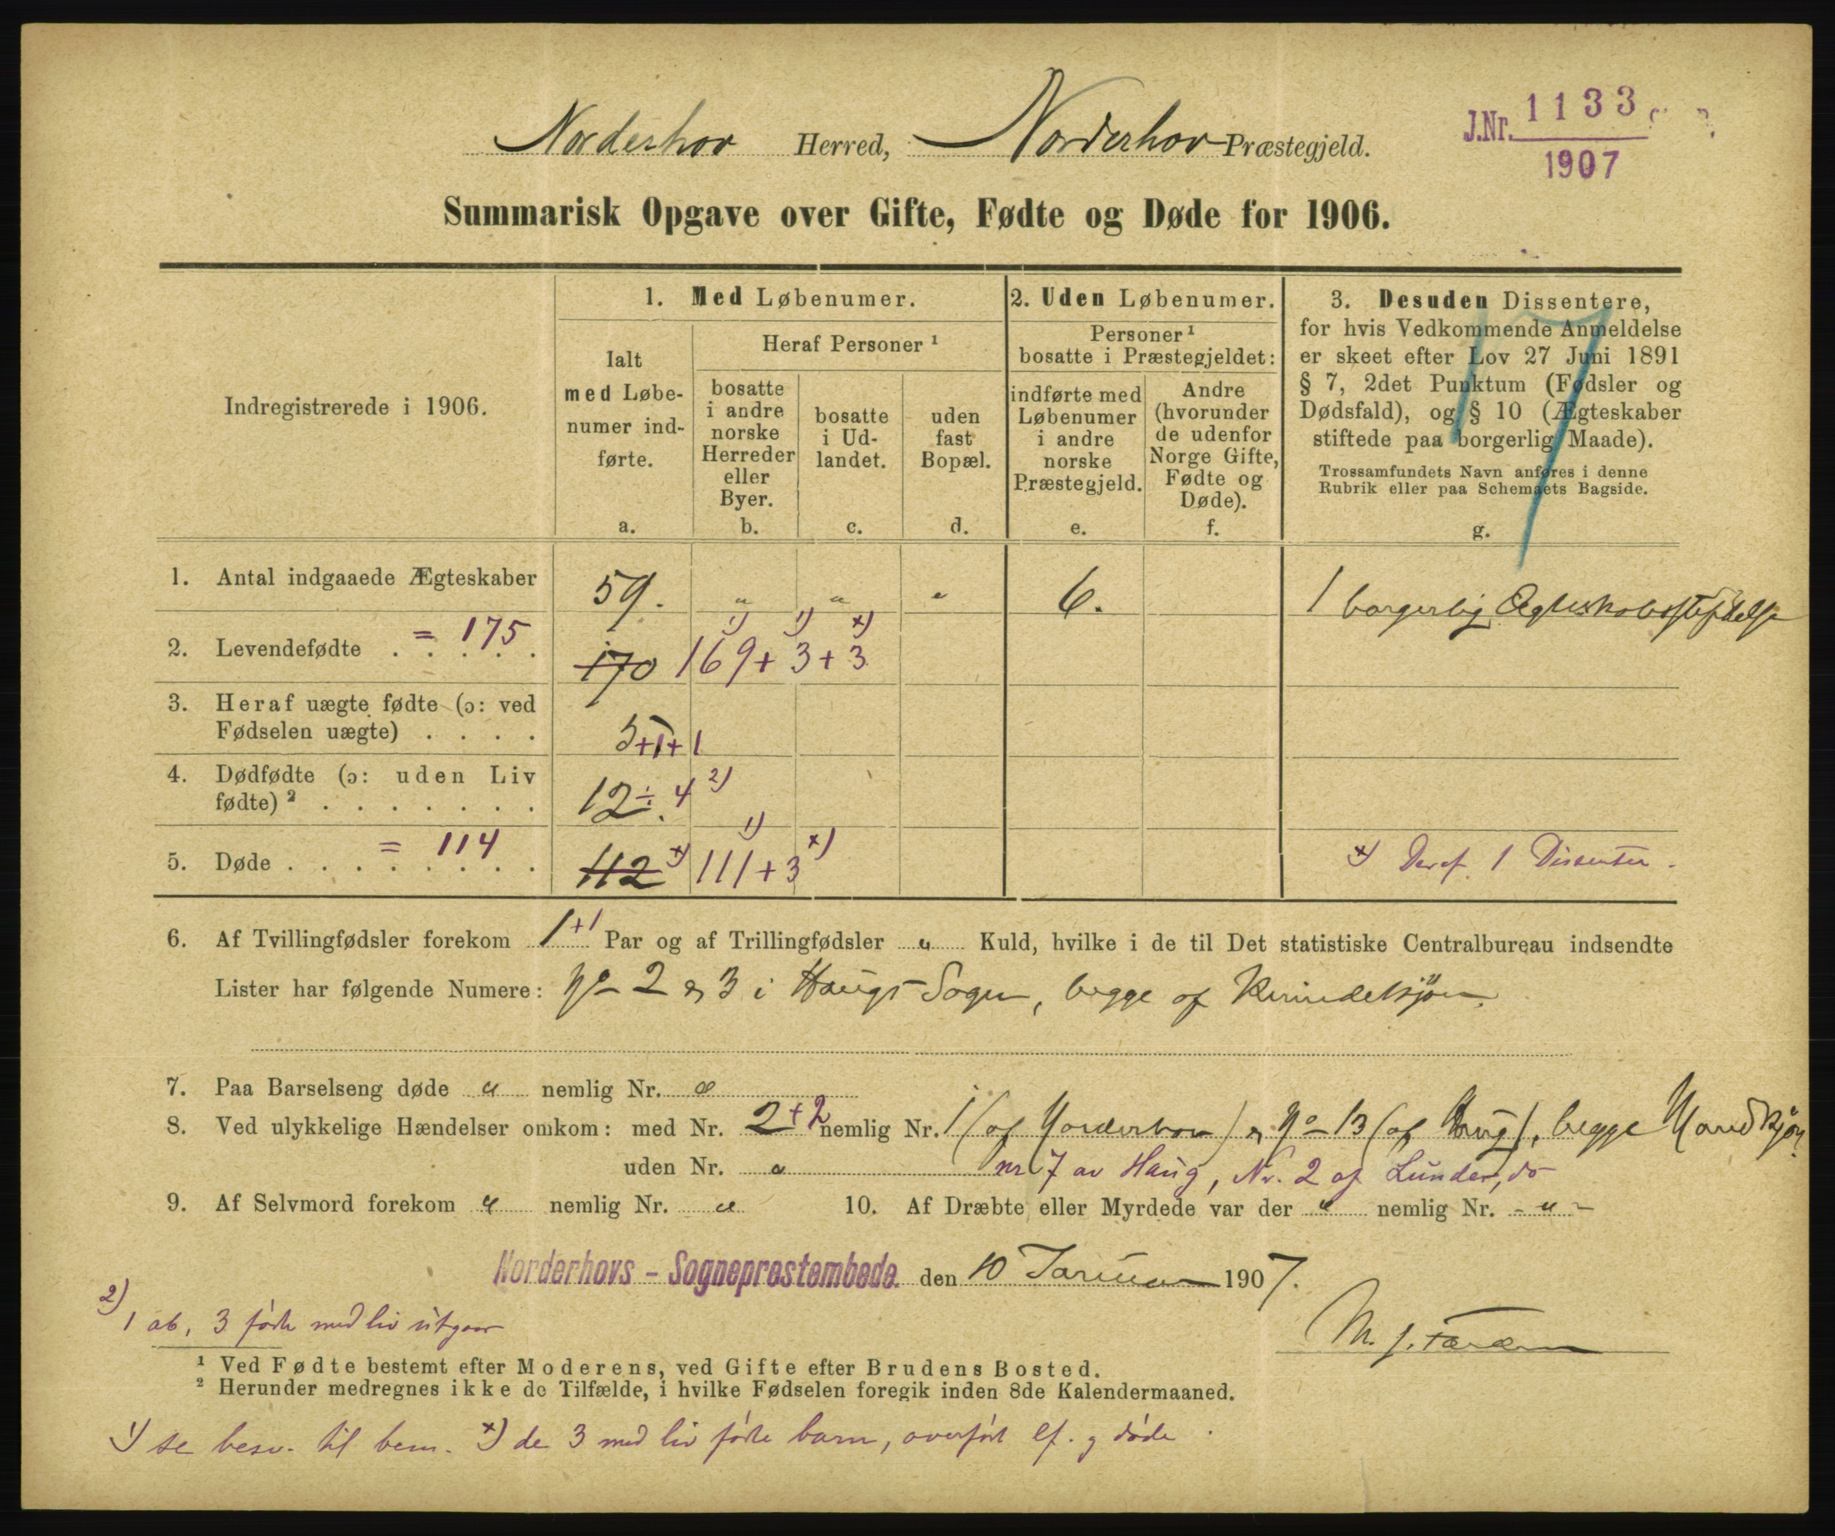 J.Nr. 1133
1907
Norderhov Herred, Norderhov Præstegjeld.
Summarisk Opgave over Gifte, Fødte og Døde for 1906.
17
Indregistrerede i 1906.
1. Med Løbenumer.
Ialt med Løbe-
numer ind-
førte.
a.
Heraf Personer ¹
bosatte
i andre
norske
Herreder
eller
Byer.
b.
bosatte
i Ud-
landet.
c.
uden
fast
Bopæl.
d.
2. Uden Løbenumer.
Personer ¹
bosatte i Præstegjeldet:
indførte med
Løbenumer
i andre
norske
Præstegjeld.
e.
Andre
(hvorunder
de udenfor
Norge Gifte,
Fødte og
Døde).
f.
3. Desuden Dissentere,
for hvis Vedkommende Anmeldelse
er skeet efter Lov 27 Juni 1891
§ 7, 2det Punktum (Fødsler og
Dødsfald), og § 10 (Ægteskaber
stiftede paa borgerlig Maade).
Trossamfundets Navn anføres i denne
Rubrik eller paa Schemaets Bagside.
g.
1. Antal indgaaede Ægteskaber 59. " " " 6. 1 borgerlig Ægteskabsstiftelse
1) 1) x)
2. Levendefødte = 175 170 169 + 3 + 3
3. Heraf uægte fødte (ɔ: ved
Fødselen uægte) 5+1+1
4. Dødfødte (ɔ: uden Liv
fødte) ² 12 ÷ 4 2)
1)
5. Døde = 114 112 x) 111 + 3 x) x) Deraf 1 Dissenter.
6. Af Tvillingfødsler forekom 1+1 Par og af Trillingfødsler " Kuld, hvilke i de til Det statistiske Centralbureau indsendte
Lister har følgende Numere: No 2 og 3 i Haugs Sogn, begge af Kvindekjøn.
7. Paa Barselseng døde " nemlig Nr. "
8. Ved ulykkelige Hændelser omkom: med Nr. 2+2 nemlig Nr. 1 (af Norderhov) og No 13 (af Haug), begge Mandkjøn
uden Nr. " nr 7 av Haug, Nr. 2 af Lunder, do
9. Af Selvmord forekom " nemlig Nr. " 10. Af Dræbte eller Myrdede var der " nemlig Nr. - " -
Norderhovs - Sogneprestembede. den 10 Januar 1907.
2)
1 ab, 3 fødte med liv utgaar
¹ Ved Fødte bestemt efter Moderens, ved Gifte efter Brudens Bosted.
² Herunder medregnes ikke de Tilfælde, i hvilke Fødselen foregik inden 8de Kalendermaaned.
1) se besv. til bem. x) de 3 med liv fødte barn, overført lf. og døde.